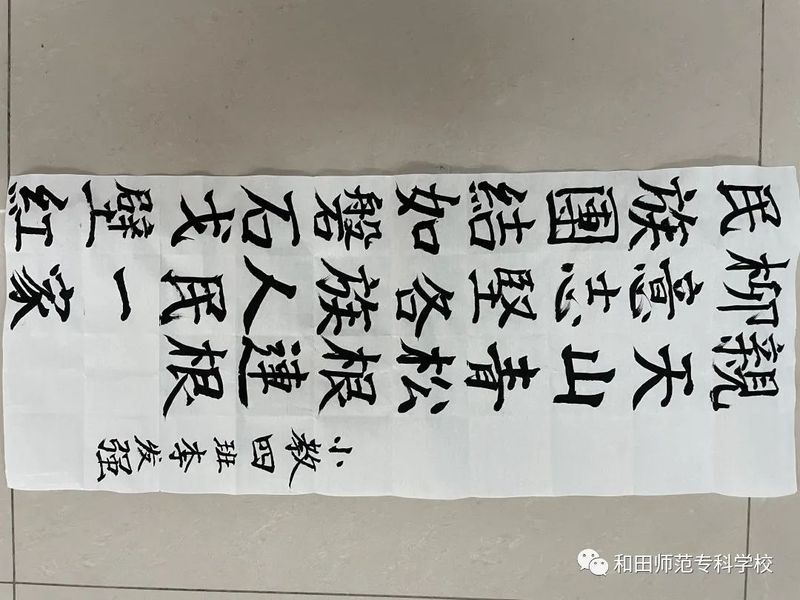 民族團結如磐石戈壁紅
柳意志堅各族人民一家
親天山青松根連根
小教四班李发强
和田师范专科学校